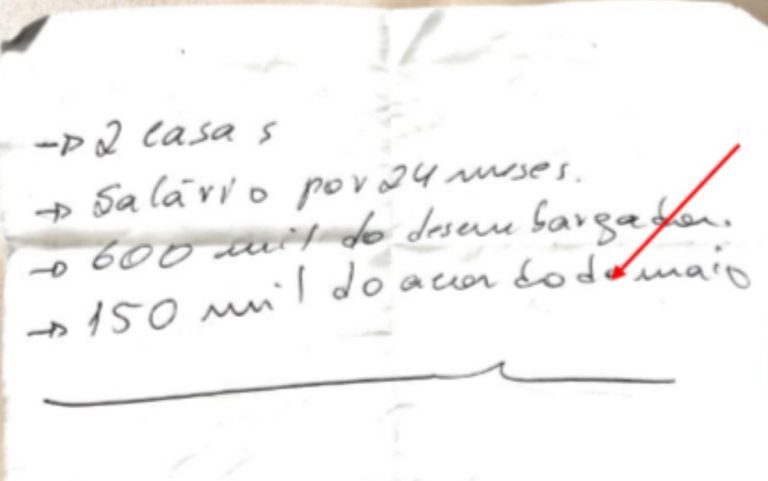 → 2 casas
→ Salário por 24 meses.
→ 600 mil do desembargador.
→ 150 mil do acordo de maio